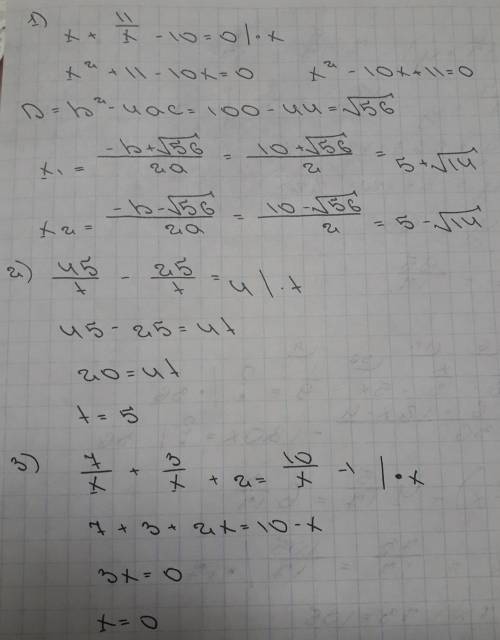 1) x + 11/x - 10 = 0 | · x
x² + 11 - 10x = 0 x² - 10x + 11 = 0
D = b² - 4ac = 100 - 44 = √56
x₁ = (-b + √56)/2a = (10 + √56)/2 = 5 + √14
x₂ = (-b - √56)/2a = (10 - √56)/2 = 5 - √14
2) 45/t - 25/t = 4 | · t
45 - 25 = 4t
20 = 4t
t = 5
3) 7/x + 3/x + 2 = 10/x - 1 | · x
7 + 3 + 2x = 10 - x
3x = 0
x = 0